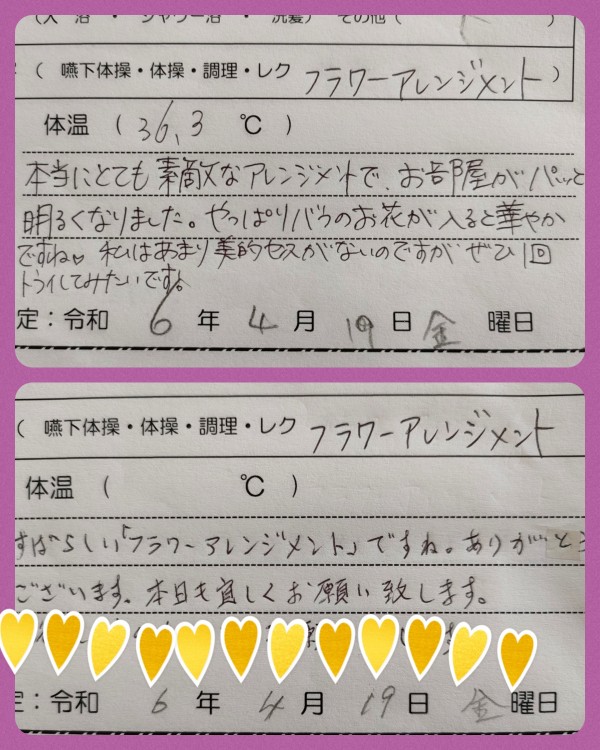 (入 浴 ・ シャワー浴 ・ 洗髪) その他 ( )
( 嚥下体操・体操・調理・レク フラワーアレンジメント )
体温 ( 36.3 ℃ )
本当にとても素敵なアレンジメントで、お部屋がパッと
明るくなりました。やっぱりバラのお花が入ると華やか
ですね♡ 私はあまり美的センスがないのですが ぜひ1回
トライしてみたいです。
定:令和 6 年 4 月 19 日 金 曜日
( 嚥下体操・体操・調理・レク フラワーアレンジメント
体温 ( ℃ )
すばらしい「フラワーアレンジメント」ですね。ありがとう
ございます。本日も宜しくお願い致します。
定:令和 6 年 4 月 19 日 金 曜日